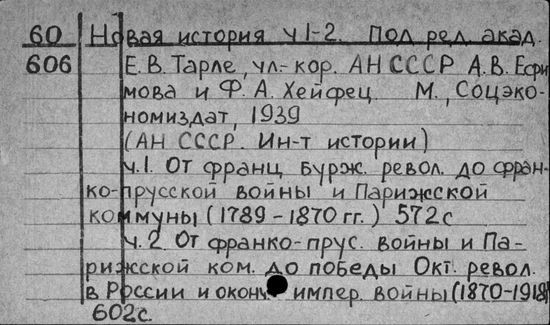 60 Новая история ч 1-2. Под ред. акад.
606 Е. В. Тарле, чл.-кор. АН СССР А. В. Ефи
мова и Ф. А. Хейфец М., Соцэко-
номиздат, 1939
(АН СССР. Ин-т истории)
ч. 1. От франц бурж. револ. до фран-
ко-прусской войны и Парижской
коммуны (1789-1870 гг.) 572с
ч. 2. От франко-прус. войны и Па-
рижской ком. до победы Окт. револ.
в России и оконч импер. войны (1870-1918)
602с.